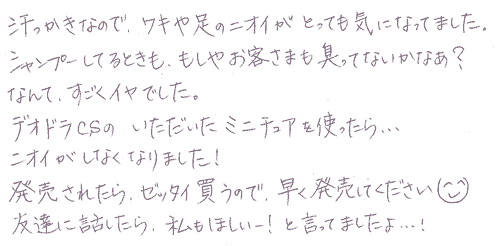 汗っかきなので、ワキや足のニオイがとっても気になってました。
シャンプーしてるときも、もしやお客さまも臭ってないかなあ?
なんて、すごくイヤでした。
デオドラCSの いただいた ミニチュアを使ったら…
ニオイがしなくなりました!
発売されたら、ゼッタイ買うので、早く発売してください
友達に話したら、私もほしいー!と言ってましたよ…!